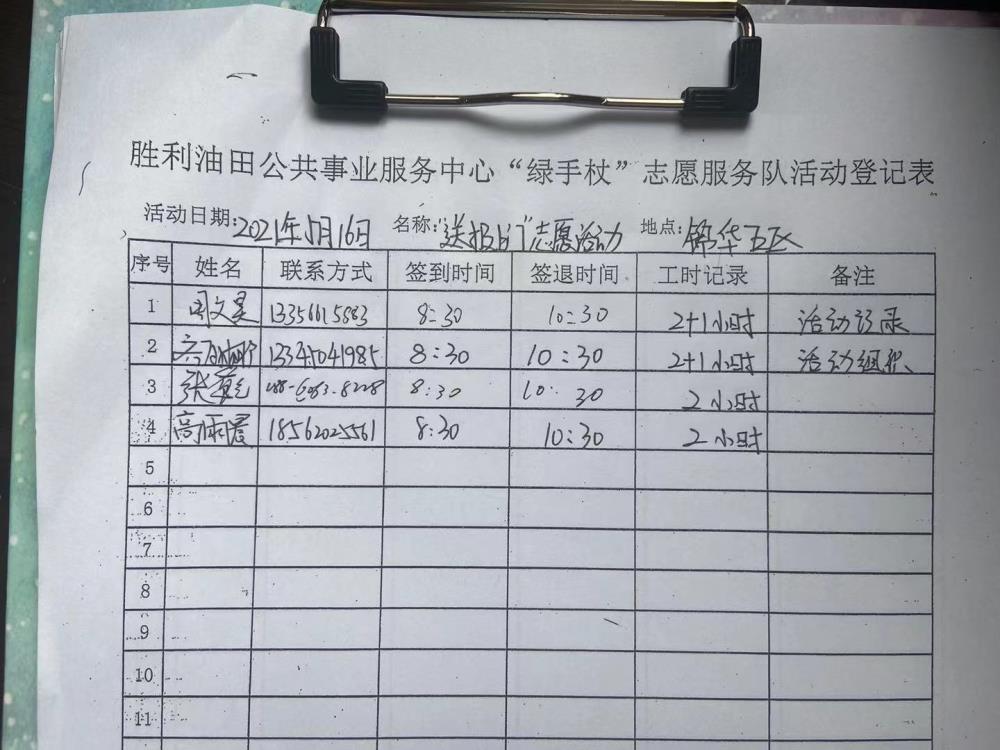 胜利油田公共事业服务中心“绿手杖”志愿服务队活动登记表
活动日期:2021年5月16日 名称:送报上门志愿活动 地点:锦华五区
序号 姓名 联系方式 签到时间 签退时间 工时记录 备注
1 周文昊 13356615883 8:30 10:30 2+1小时 活动记录
2 13345041985 8:30 10:30 2+1小时 活动组织
3 张 8:30 10:30 2小时
4 高雨晨 18562025561 8:30 10:30 2小时
5
6
7
8
9
10
11